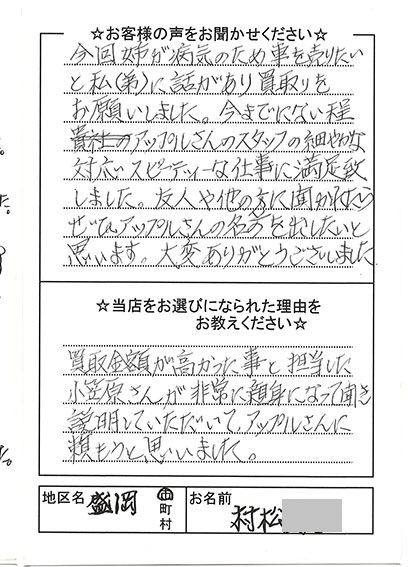 ☆お客様の声をお聞かせください☆
今回姉が病気のため車を売りたい
と私(弟)に話があり買取りを
お願いしました。今までにない程
貴社のアップルさんのスタッフの細やかな
対応スピーディーな仕事に満足致
しました。友人や他の方に聞かれたら
ぜひアップルさんの名前を出したいと
思います。大変ありがとうございました
☆当店をお選びになられた理由を
お教えください☆
買取金額が高かった事と担当した
小笠原さんが非常に親身になって聞き
説明していただいて、アップルさんに
頼もうと思いました。
地区名 盛岡 市町村 お名前 村松